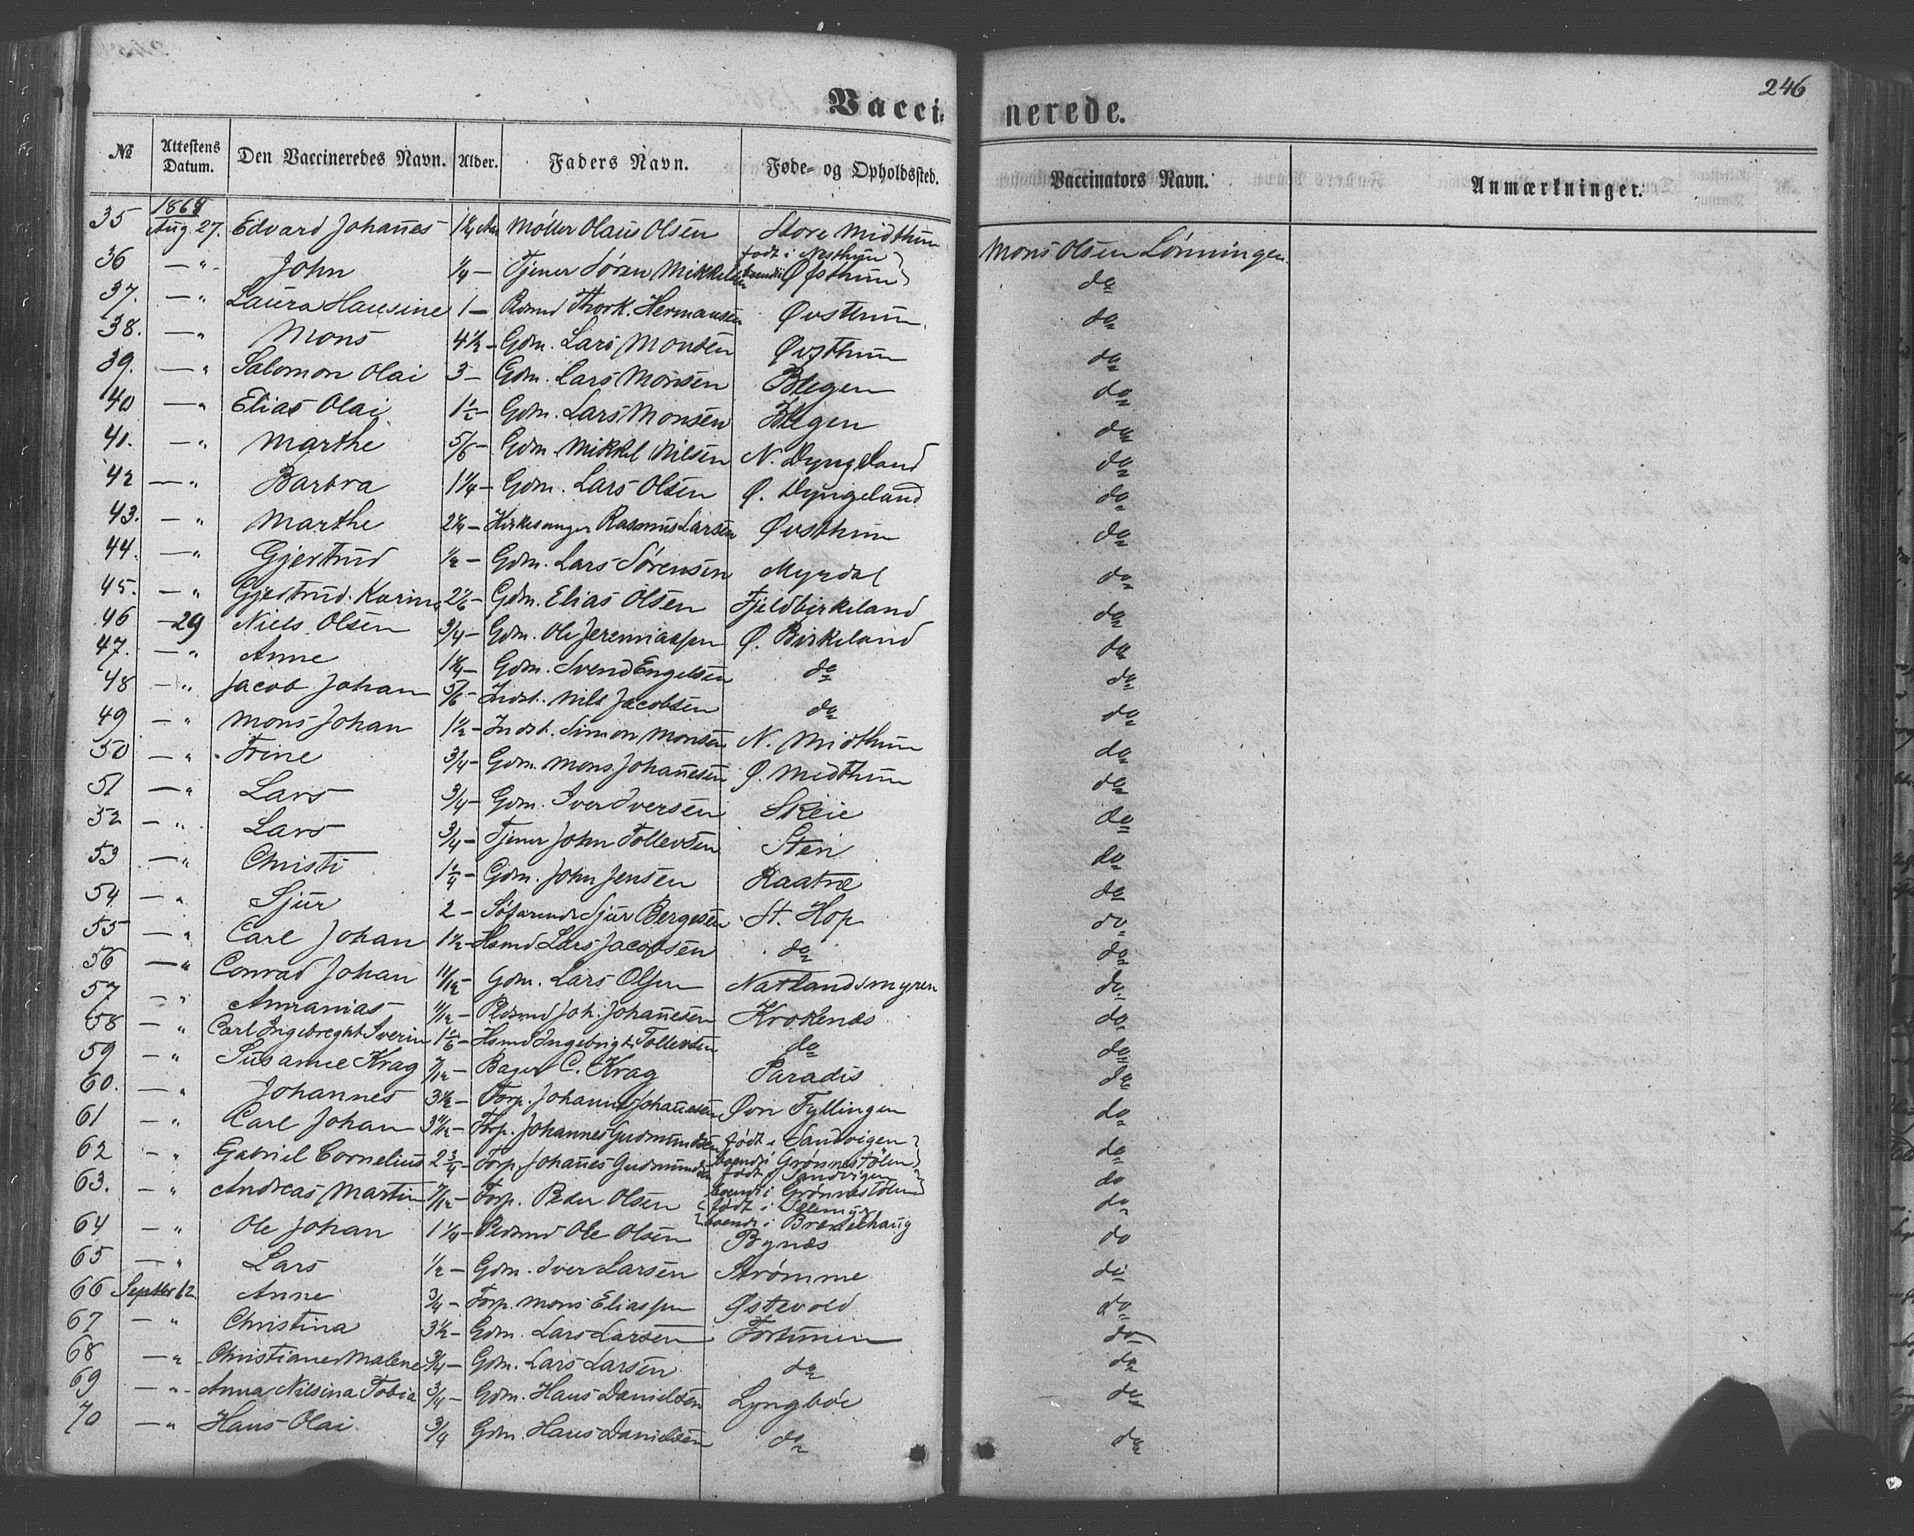 246
Vaccinerede.
№ Attestens Datum. Den Vaccineredes Navn. Alder. Faders Navn. Føde- og Opholdssted. Vaccinators Navn. Anmærkninger.
35 Aug 27. Edvard Johannes 1 1/4 Aar Møller Olaus Olsen Store Midthun Mons Olsen Lønningen
36 — " John 1/4 — Tjener Søren Mikkelsen født i Nesthun boende i Øfsthun do
37. — " Laura Hansine 1 — Pldsmd Thork. Hermansen Øvsthun do
38. — " Mons 4 1/2 — Gdm. Lars Monsen Øvsthun do
39. — " Salomon Olai 3 — Gdm. Lars Monsen Blegen do
40 — " Elias Olai 1 1/2 — Gdm. Lars Monsen Blegen do
41. — " Marthe 5/6 — Gdm. Mikkel Nilsen N. Dyngeland do
42 — " Barbra 1 1/4 — Gdm. Lars Olsen Ø. Dyngeland do
43. — " Marthe 2 1/4 — Kirkesanger Rasmus Larsen Øvsthun do
44. — " Gjertrud 1/2 — Gdm. Lars Sørensen Myrdal do
45. — " Gjertrud Karina 2 1/6 — Gdm. Elias Olsen Fjeldbirkeland do
46 — 29 Niels Olsen 3/4 — Gdm. Ole Jeremiassen Ø. Birkeland do
47. — " Anne 1 1/4 — Gdm. Svend Engelsen do do
48 — " Jacob Johan 5/6 — Indst. Nils Jacobsen do do
49 — " Mons Johan 1 1/2 — Indst. Simon Monsen N. Midthun do
50 — " Trine 3/4 — Gdm. Mons Johannesen Ø. Midthun do
51 — " Lars 3/4 — Gdm. Iver Iversen Skeie do
52 — " Lars 3/4 — Tjener John Tollevsen Sten do
53 — " Christi 1 1/4 — Gdm. John Jensen Raatræ do
54 — " Sjur 2 — Søfarende Sjur Bergesen St. Hop do
55 — " Carl Johan 1 1/2 — Hsmd Lars Jacobsen do do
56 — " Conrad Johan 11/12 — Gdm. Lars Olsen Natlandsmyren do
57 — " Annanias 11/12 — Pldsmd Joh. Johannesen Krokenæs do
58 — " Carl Ingebreght Sverin 1 1/6 — Hsmd Ingebrigt Tollevsen do do
59 — " Susanne Krag 7/12 — Bager C. Krag Paradis do
60. — " Johannes 3 1/2 — Forp. Johannes Johannesen Øvr Fyllingen do
61 — " Carl Johan 3 11/12 — Forp. Johannes Gudmundsen født i Sandvigen boende i Grønnestølen do
62 — " Gabriel Cornelius 2 3/4 — Forp. Johannes Gudmundsen født i Sandvigen boende i Grønnestølen do
63. — " Andreas Martin 7/12 — Forp. Peder Olsen født i boende i Brødehaug do
64 — " Ole Johan 1 1/4 — Pldsmd Ole Olsen Bynæs do
65 — " Lars 1/2 — Gdm. Iver Larsen Strømme do
66 Septbr 12 Anne 3/4 — Forp. Mons Eliassen Østevold do
67 — " Christina 3 1/2 — Gdm. Lars Larsen Fortunen do
68 — " Christiane Malene 3/4 — Gdm. Lars Larsen do do
69 — " Anna Nilsina Tobia 3/4 — Gdm. Hans Danielsen Lyngbøe do
70 — " Hans Olai 3/4 Gdm. Hans Danielsen do do